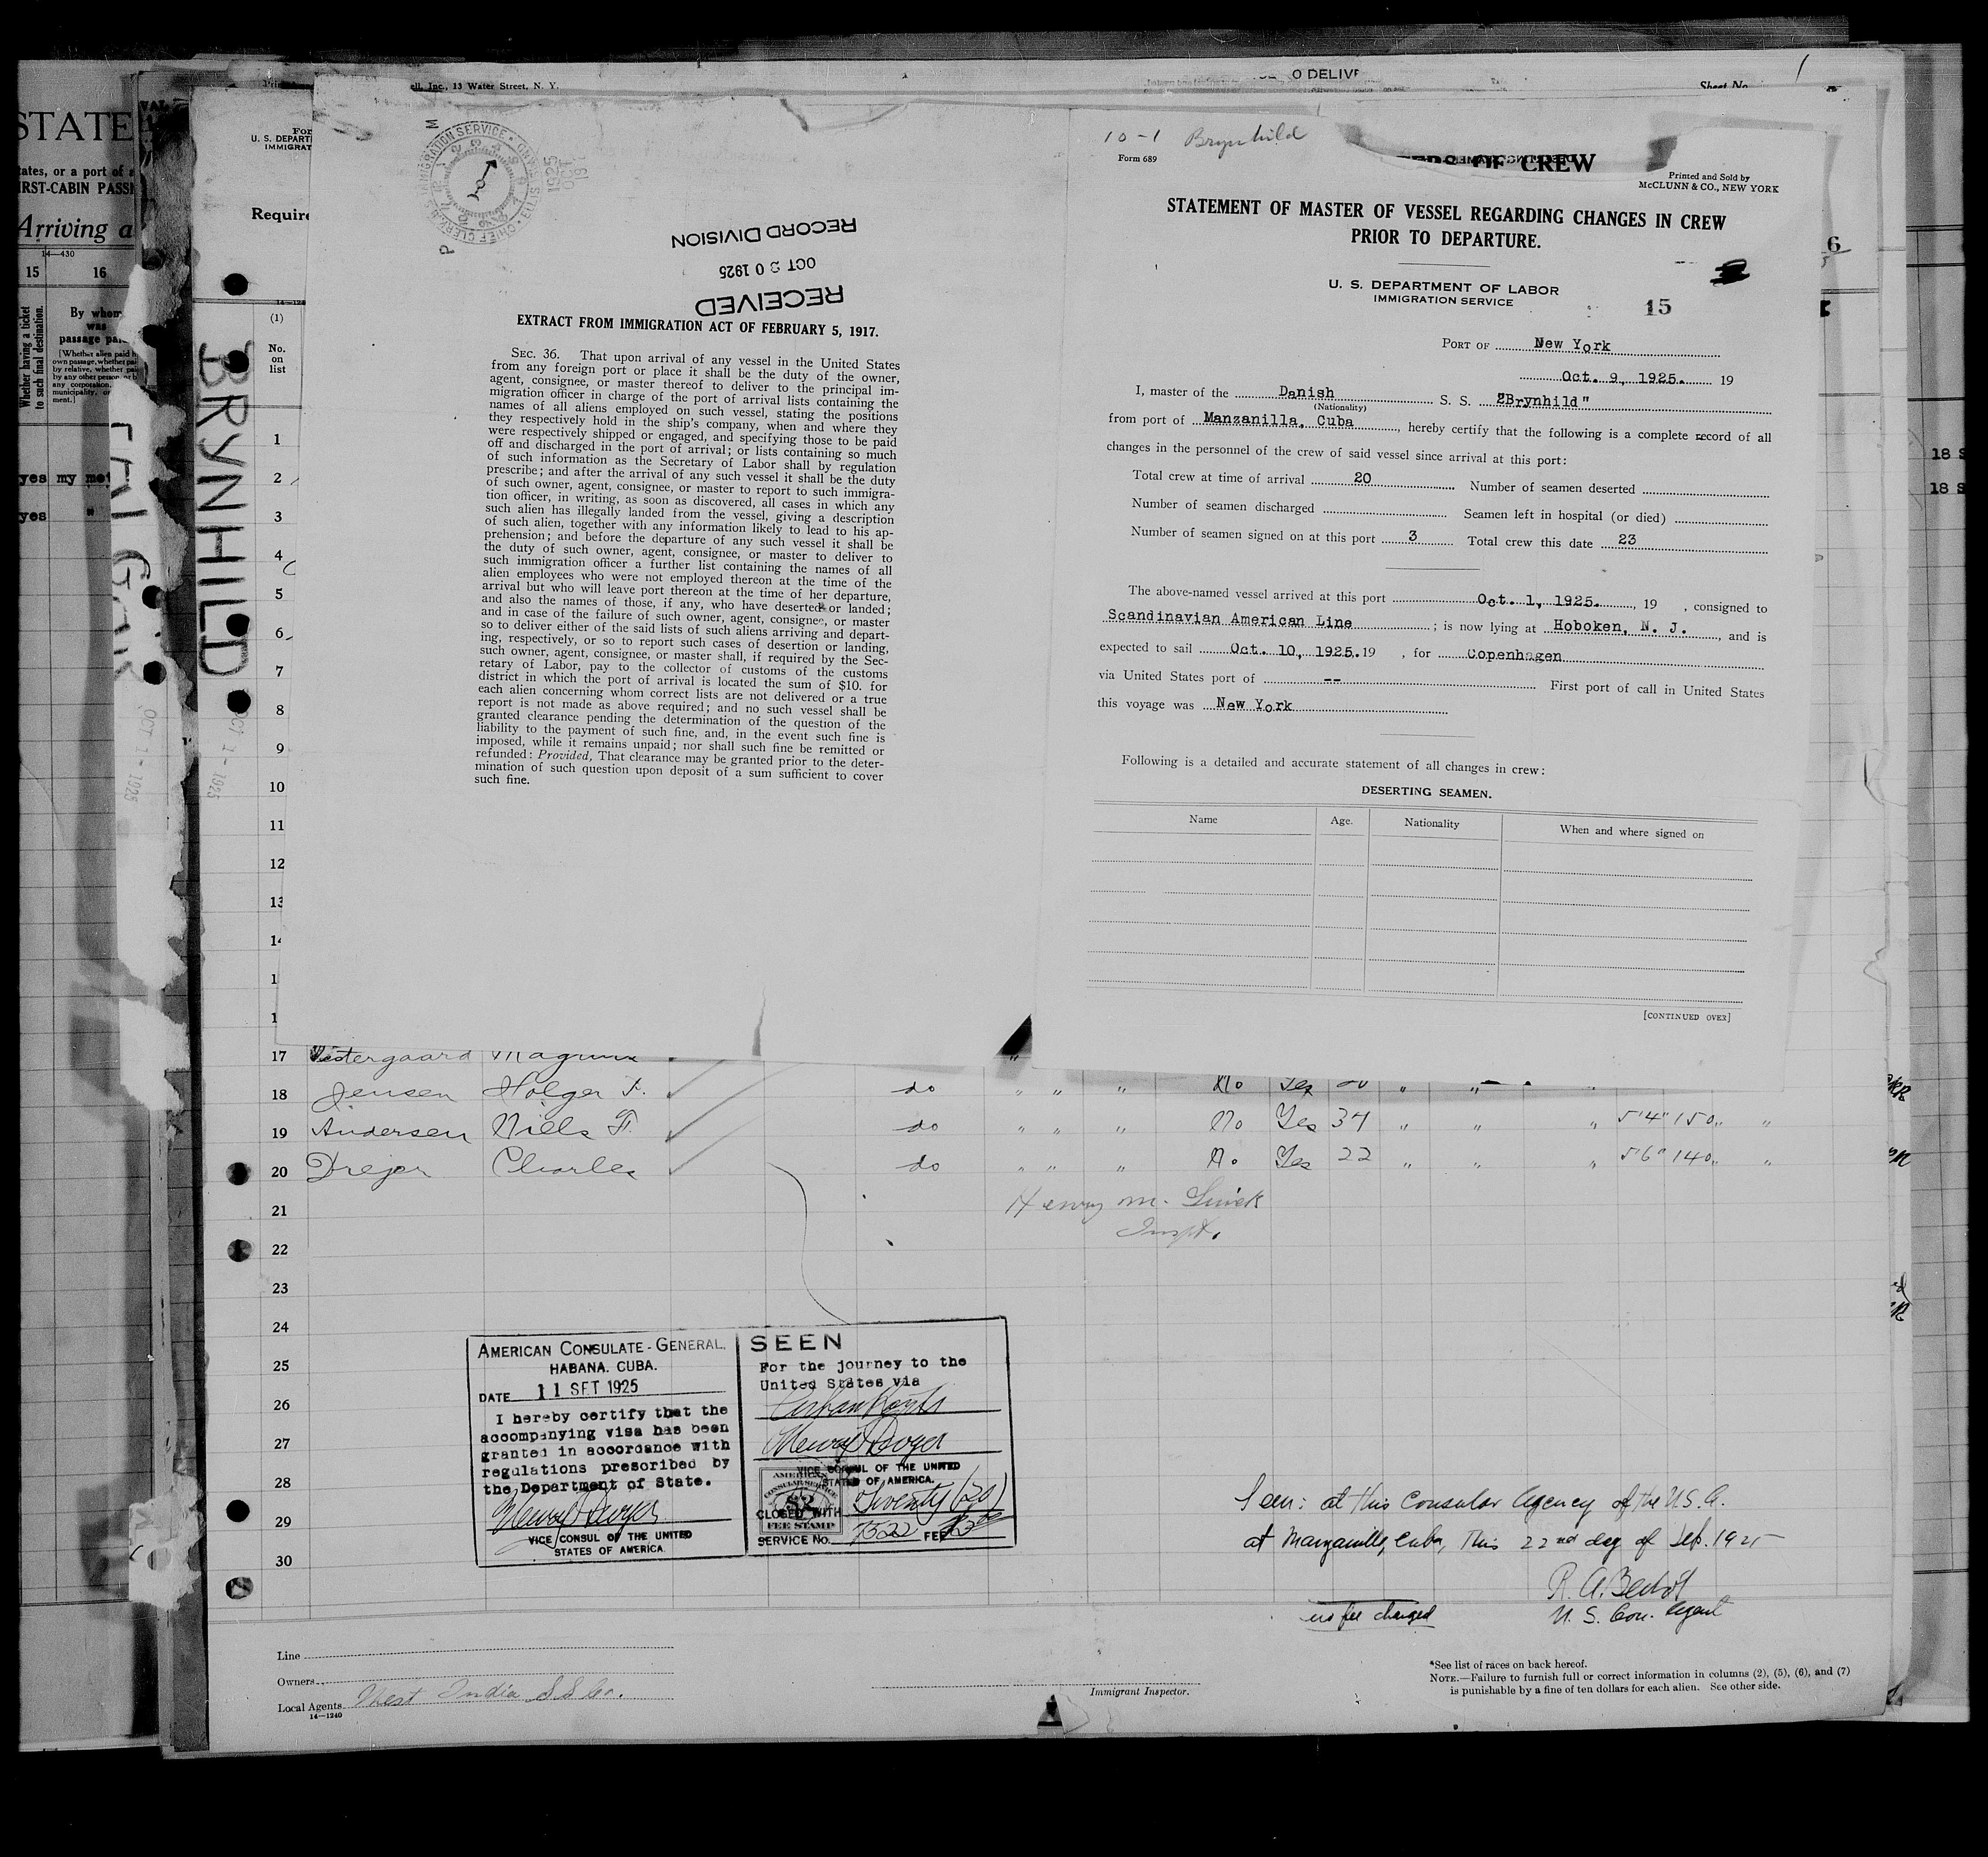 STATE
tates, or a port of a
IRST-CABIN PASS
Arriving a
14—430
15 16
Whether having a ticket to such final destination.
By whom
was
passage pa
yes my mot
yes "
BRYNHILD
OCT 1 - 1925
OCT 1 - 1925
ell, Inc., 13 Water Street, N. Y.
O DELIV
Sheet No
For
U. S. DEPART
IMMIGRAT
Require
(1)
No.
on
list
1
2
3
4
5
6
7
8
9
10
11
12
13
RECORD DIVISION
OCT 20 1925
RECEIVED
EXTRACT FROM IMMIGRATION ACT OF FEBRUARY 5, 1917.
SEC. 36. That upon arrival of any vessel in the United States
from any foreign port or place it shall be the duty of the owner,
agent, consignee, or master thereof to deliver to the principal im-
migration officer in charge of the port of arrival lists containing the
names of all aliens employed on such vessel, stating the positions
they respectively hold in the ship's company, when and where they
were respectively shipped or engaged, and specifying those to be paid
off and discharged in the port of arrival; or lists containing so much
of such information as the Secretary of Labor shall by regulation
prescribe; and after the arrival of any such vessel it shall be the duty
of such owner, agent, consignee, or master to report to such immigra-
tion officer, in writing, as soon as discovered, all cases in which any
such alien has illegally landed from the vessel, giving a description
of such alien, together with any information likely to lead to his ap-
prehension; and before the departure of any such vessel it shall be
the duty of such owner, agent, consignee, or master to deliver to
such immigration officer a further list containing the names of all
alien employees who were not employed thereon at the time of the
arrival but who will leave port thereon at the time of her departure,
and also the names of those, if any, who have deserted or landed;
and in case of the failure of such owner, agent, consignee, or master
so to deliver either of the said lists of such aliens arriving and depart-
ing, respectively, or so to report such cases of desertion or landing,
such owner, agent, consignee, or master shall, if required by the Sec-
retary of Labor, pay to the collector of customs of the customs
district in which the port of arrival is located the sum of $10. for
each alien concerning whom correct lists are not delivered or a true
report is not made as above required; and no such vessel shall be
granted clearance pending the determination of the question of the
liability to the payment of such fine, and, in the event such fine is
imposed, while it remains unpaid; nor shall such fine be remitted or
refunded: Provided, That clearance may be granted prior to the deter-
mination of such question upon deposit of a sum sufficient to cover
such fine.
10-1 Brynhild
Form 689
OF CREW
Printed and Sold by
McCLUNN & CO., NEW YORK
STATEMENT OF MASTER OF VESSEL REGARDING CHANGES IN CREW
PRIOR TO DEPARTURE.
U. S. DEPARTMENT OF LABOR
IMMIGRATION SERVICE
15
PORT OF New York
Oct. 9, 1925. 19
I, master of the Danish S. S. "Brynhild"
(Nationality)
from port of Manzanilla, Cuba, hereby certify that the following is a complete record of all
changes in the personnel of the crew of said vessel since arrival at this port:
Total crew at time of arrival 20 Number of seamen deserted
Number of seamen discharged Seamen left in hospital (or died)
Number of seamen signed on at this port 3 Total crew this date 23
The above-named vessel arrived at this port Oct. 1, 1925., 19 , consigned to
Scandinavian American Line ; is now lying at Hoboken, N. J. , and is
expected to sail Oct. 10, 1925. 19 , for Copenhagen
via United States port of -- First port of call in United States
this voyage was New York
Following is a detailed and accurate statement of all changes in crew:
DESERTING SEAMEN.
Name Age. Nationality When and where signed on
[CONTINUED OVER]
18 S
18 S
17 Vestergaard Magnus
18 Jensen Holger F. do " " " No Yes " "
19 Andersen Niels F. do " " " No Yes 34 " " " 5'4" 150 " "
20 Drejer Charles do " " " No Yes 22 " " " 5'6" 140 " "
21
Inspt.
22
23
24
25
26
27
28
29
30
AMERICAN CONSULATE-GENERAL,
HABANA, CUBA.
DATE 11 SET 1925
I hereby certify that the
accompanying visa has been
granted in accordance with
regulations prescribed by
the Department of State.
VICE CONSUL OF THE UNITED
STATES OF AMERICA.
SEEN
For the journey to the
United States via
VICE CONSUL OF THE UNITED
STATES OF AMERICA.
AMERICAN
CONSULAR SERVICE
$2
FEE STAMP
CLOSED WITH Twenty (20)
SERVICE NO. 7522 FEE
Seen: at this Consular Agency of the U.S.A.
at Manzanillo, Cuba, this 22nd day of Sep. 1925
U. S. Con. Agent
no fee charged
Line
Owners
Local Agents West India S S Co.
14—1240
Immigrant Inspector.
*See list of races on back hereof.
NOTE.—Failure to furnish full or correct information in columns (2), (5), (6), and (7)
is punishable by a fine of ten dollars for each alien. See other side.